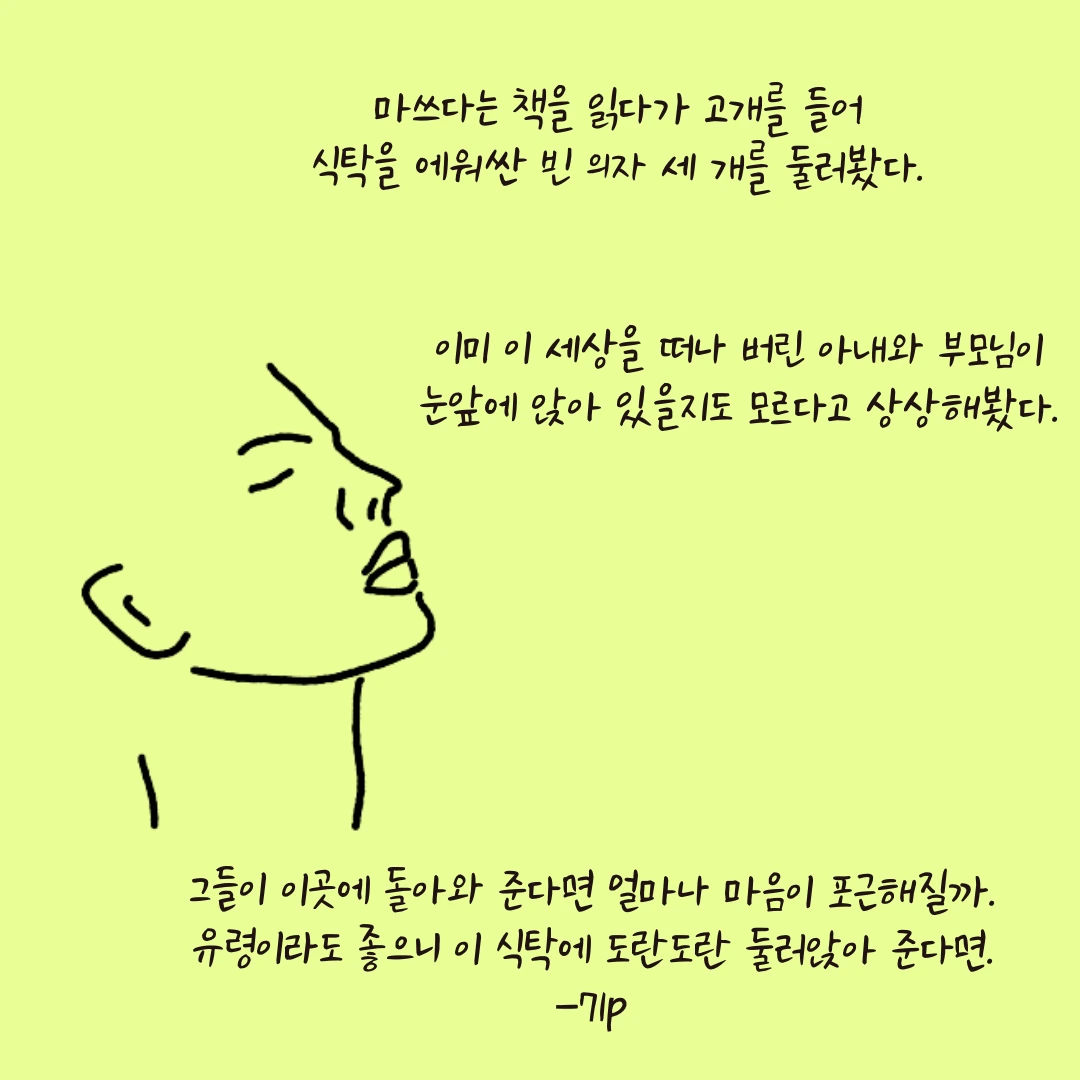 마쓰다는 책을 읽다가 고개를 들어
식탁을 에워싼 빈 의자 세 개를 둘러봤다.
이미 이 세상을 떠나 버린 아내와 부모님이
눈앞에 앉아 있을지도 모른다고 상상해봤다.
그들이 이곳에 돌아와 준다면 얼마나 마음이 포근해질까.
유령이라도 좋으니 이 식탁에 도란도란 둘러앉아 준다면.
-71p